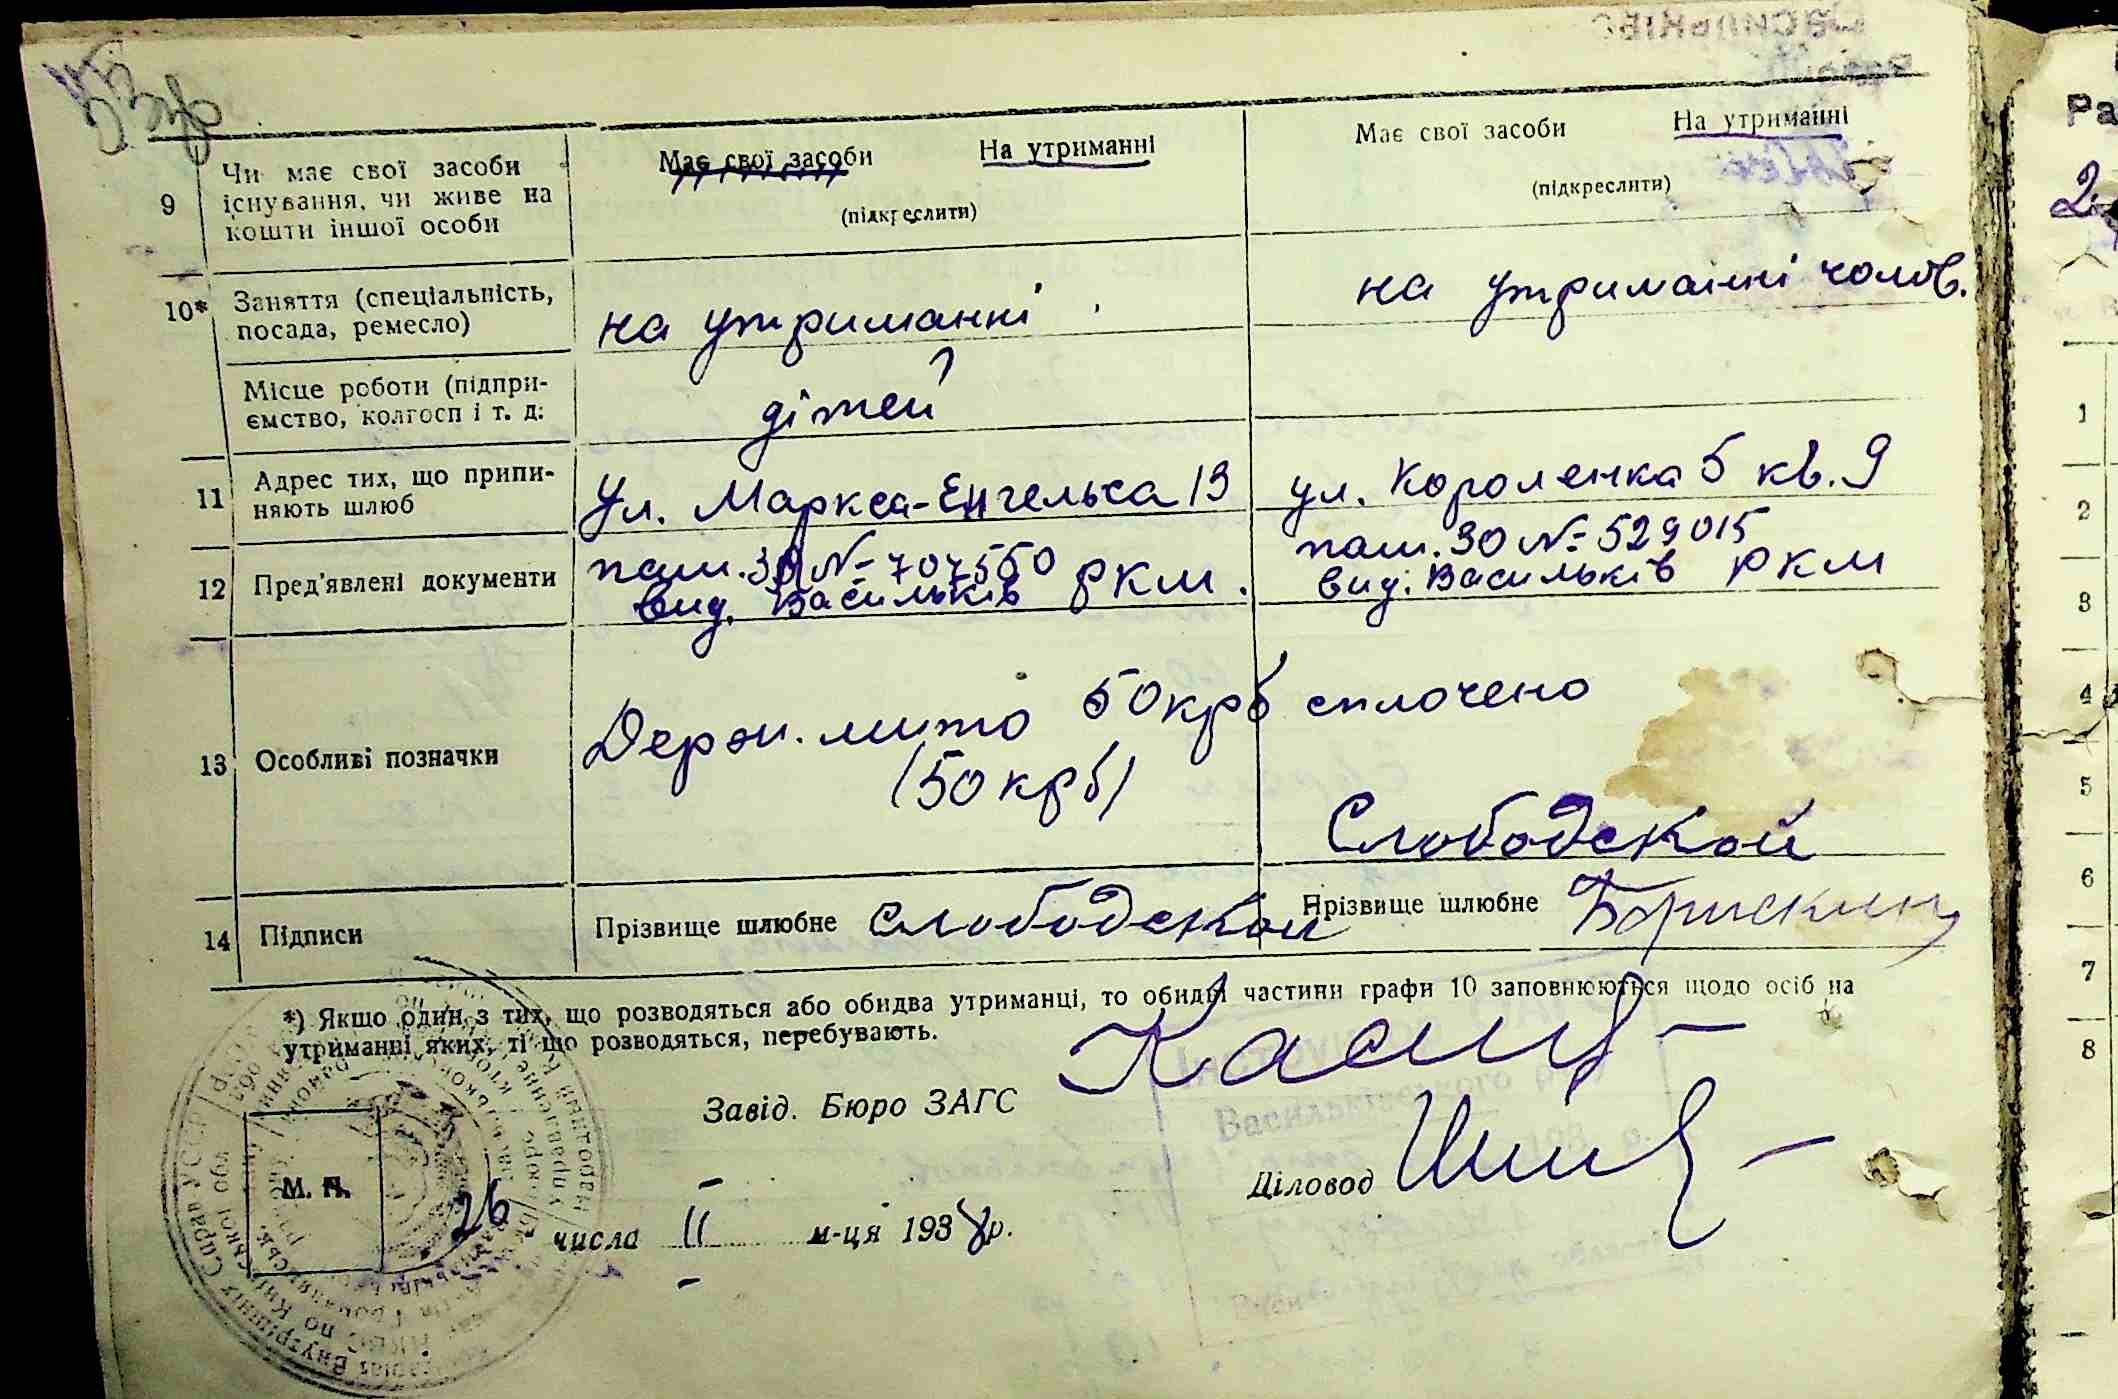 9 Чи має свої засоби існування, чи живе на кошти іншої особи
Має свої засоби На утриманні
(підкреслити)
Має свої засоби На утриманні
(підкреслити)
10* Заняття (спеціальність, посада, ремесло)
на утриманні
на утриманні чолов.
Місце роботи (підпри-
ємство, колгосп і т. д.
дітей
11 Адрес тих, що припи-
няють шлюб
Ул. Маркса-Енгельса 13
ул. Короленка 5 кв. 9
12 Пред'явлені документи
паш. 30 № 707550
вид. Васильків РКМ.
паш. 30 № 529015
вид. Васильків РКМ
13 Особливі позначки
Держ. мито 50 крб сплочено
(50 крб)
Слободской
14 Підписи
Прізвище шлюбне Слободской
Прізвище шлюбне Борискин
*) Якщо один з тих, що розводяться або обидва утриманці, то обидві частини графи 10 заповнюються щодо осіб на
утриманні яких, ті що розводяться, перебувають.
Завід. Бюро ЗАГС
Діловод
М. П.
26 числа II м-ця 1938 р.
Ра
2
1
2
3
4
5
6
7
8